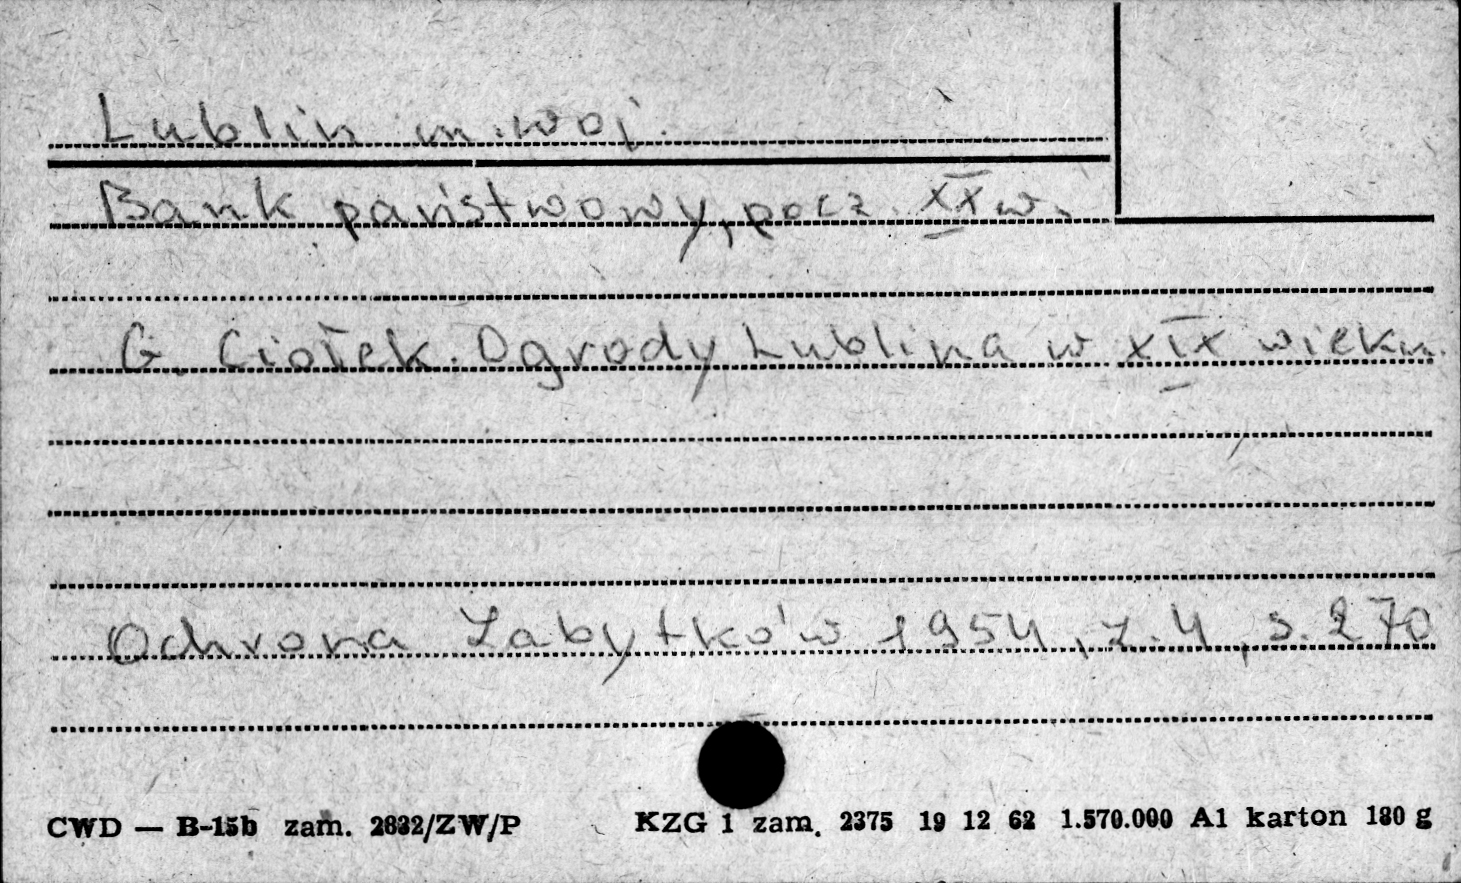 Lublin m. woj.
Bank państwowy, pocz. XX w.
G. Ciołek. Ogrody Lublina w XIX wieku.
Ochrona Zabytków 1954, z. 4, s. 270
CWD — B-15b zam. 2632/ZW/P KZG 1 zam. 2375 19 12 62 1.570.000 A1 karton 180 g